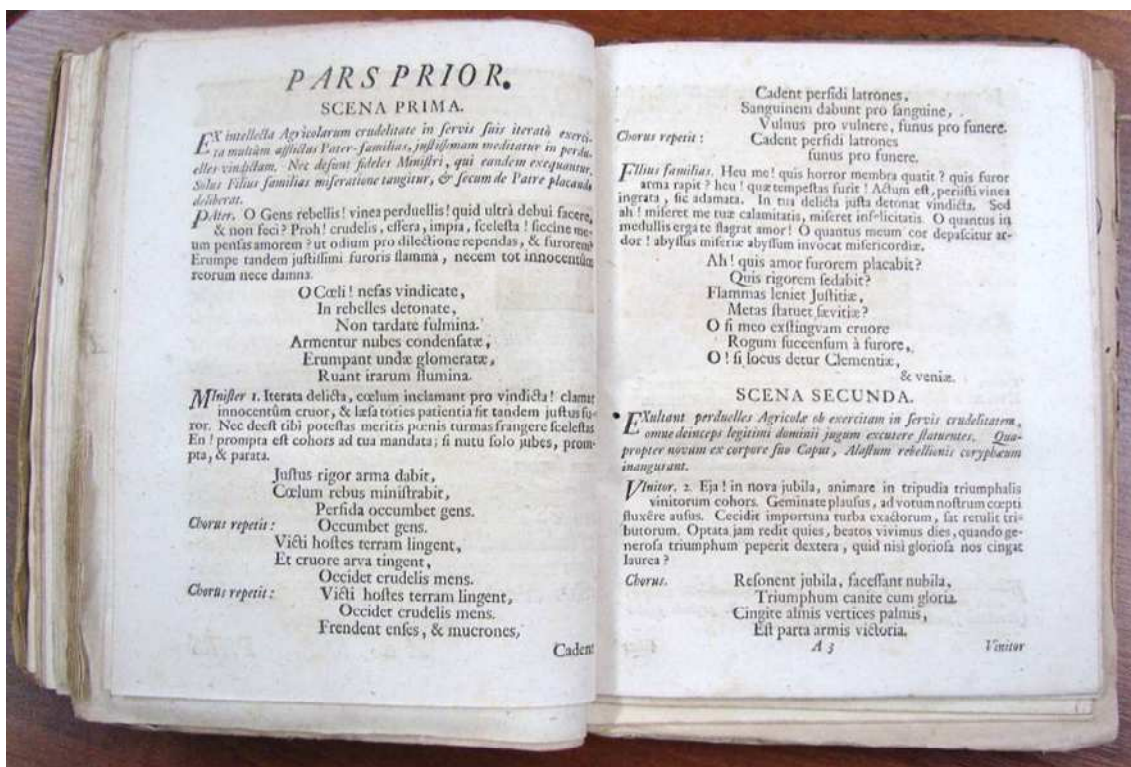 PARS PRIOR.
SCENA PRIMA.
EX intellecta Agricolarum crudelitate in servis suis iteratò exerci-
ta multùm afflictus Pater-familias, justissimam meditatur in perdu-
elles vindictam. Nec desunt fideles Ministri, qui eandem exequantur.
Solus Filius familias miseratione tangitur, & secum de Patre placando
deliberat.
PAter. O Gens rebellis! vinea perduellis! quid ultrà debui facere,
& non feci? Proh! crudelis, effera, impia, scelesta! siccine me-
um pensas amorem? ut odium pro dilectione rependas, & furorem?
Erumpe tandem justissimi furoris flamma, necem tot innocentûm
reorum nece damna.
O Cœli! nefas vindicate,
In rebelles detonate,
Non tardate fulmina.
Armentur nubes condensatæ,
Erumpant undæ glomeratæ,
Ruant irarum flumina.
MInister 1. Iterata delicta, cœlum inclamant pro vindicta! clamat
innocentûm cruor, & læsa toties patientia fit tandem justus fu-
ror. Nec deest tibi potestas meritis pœnis turmas frangere scelestas
En! prompta est cohors ad tua mandata; si nutu solo jubes, prom-
pta, & parata.
Justus rigor arma dabit,
Cœlum rebus ministrabit,
Perfida occumbet gens.
Chorus repetit: Occumbet gens.
Victi hostes terram lingent,
Et cruore arva tingent,
Occidet crudelis mens.
Chorus repetit: Victi hostes terram lingent,
Occidet crudelis mens.
Frendent enses, & mucrones,
Cadent
Cadent perfidi latrones,
Sanguinem dabunt pro sanguine,
Vulnus pro vulnere, funus pro funere.
Chorus repetit: Cadent perfidi latrones
funus pro funere.
FIlius familias. Heu me! quis horror membra quatit? quis furor
arma rapit? heu! quæ tempestas furit! Actum est, periisti vinea
ingrata, sic adamata. In tua delicta justa detonat vindicta. Sed
ah! miseret me tuæ calamitatis, miseret infelicitatis. O quantus in
medullis erga te flagrat amor! O quantus meum cor depascitur ar-
dor! abyssus miseriæ abyssum invocat misericordiæ.
Ah! quis amor furorem placabit?
Quis rigorem sedabit?
Flammas leniet Justitiæ,
Metas statuet sævitiæ?
O si meo exstingvam cruore
Rogum succensum à furore,
O! si locus detur Clementiæ,
& veniæ.
SCENA SECUNDA.
EXultant perduelles Agricolæ ob exercitam in servis crudelitatem,
omne deinceps legitimi dominii jugum excutere statuentes. Qua-
propter novum ex corpore suo Caput, Alastum rebellionis coryphæum
inaugurant.
VInitor. 2. Eja! in nova jubila, animare in tripudia triumphalis
vinitorum cohors. Geminate plausus, ad votum nostrum cœpti
fluxêre ausus. Cecidit importuna turba exactorum, sat retulit tri-
butorum. Optata jam redit quies, beatos vivimus dies, quando ge-
nerosa triumphum peperit dextera, quid nisi gloriosa nos cingat
laurea?
Chorus. Resonent jubila, facessant nubila,
Triumphum canite cum gloria.
Cingite almis vertices palmis,
Est parta armis victoria.
A 3 Vinitor